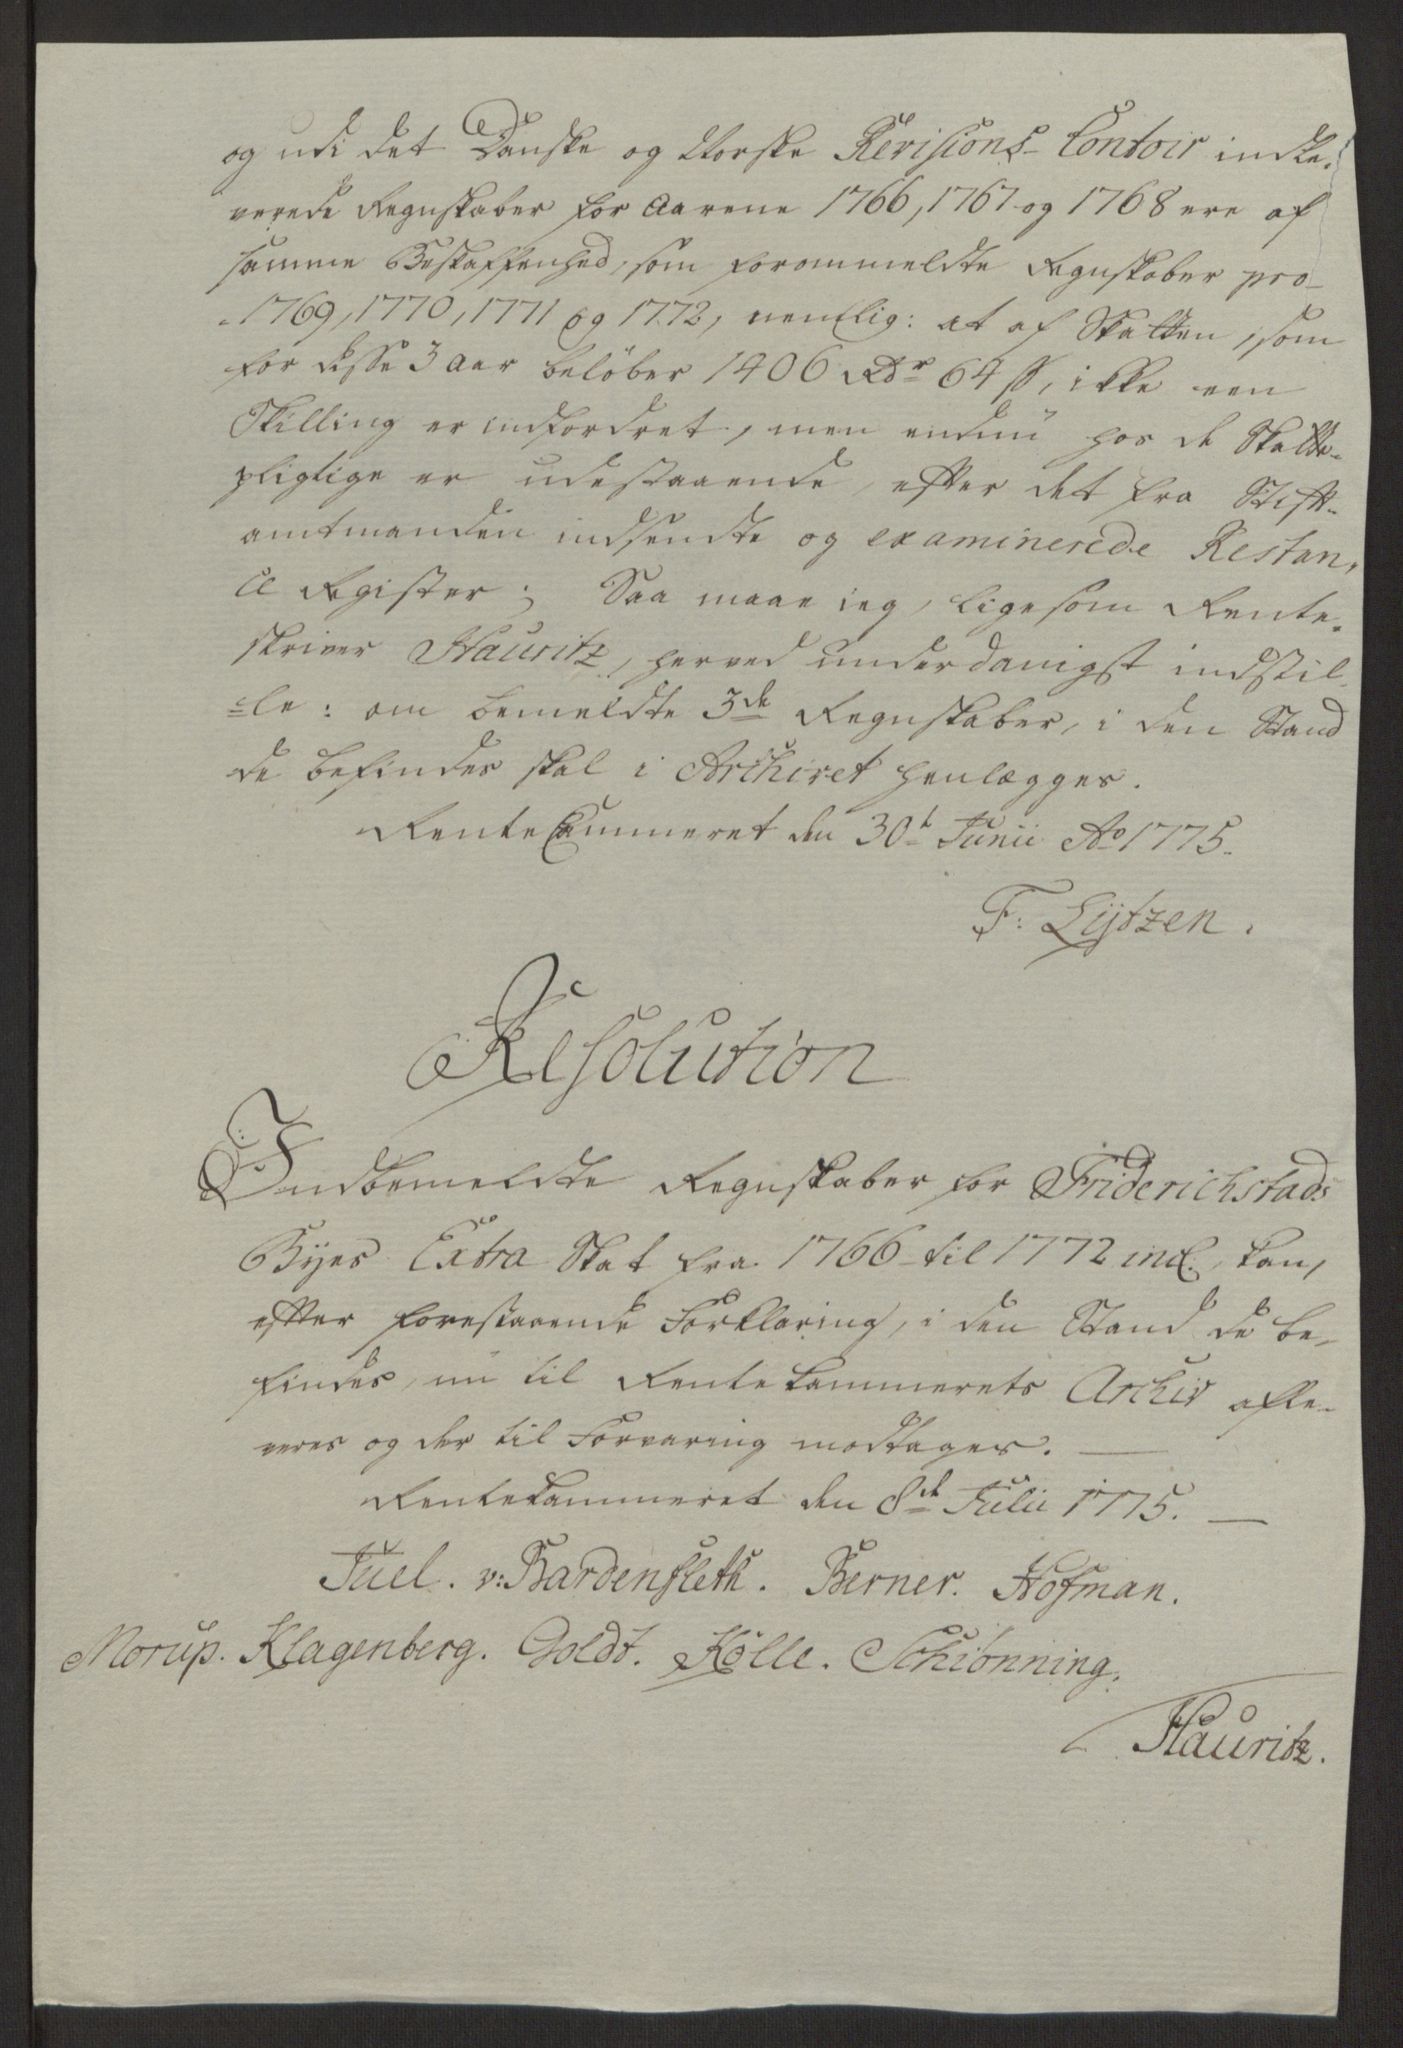 og udi det Danske og Norske Revisions-Contoir indle-
verede Regnskaber for Aarene 1766, 1767 og 1768 ere af
samme Beskaffenhed, som forommeldte Regnskaber pro-
-1769, 1770, 1771 og 1772, nemlig: at af Skatten, som
for disse 3 Aar beløber 1406 Rdr 64 ß, ikke een
Skilling er indfordret, men endnu hos de Skatte-
pligtige er udestaaende, efter det fra Stift-
amtmanden indsendte og examinerede Restan-
ce Register; Saa maae ieg, ligesom Rente-
skriver Hauritz, herved underdanigst indstil-
=le: om bemeldte 3de Regnskaber, i den Stand
de befindes skal i Archivet henlægges.
RenteCammeret den 30t Junii Ao 1775.
F: Lÿtzen.
Resolution
Indbemeldte Regnskaber for Friderichstads
Byes Extra Skat fra 1766 til 1772 incl. kan,
efter forestaaende Forklaring, i den Stand de be-
findes, nu til Rentekammerets Archiv afle-
veres og der til Forvaring modtages. —
Rentekammeret den 8de Julii 1775. —
Juel. v: Bardenfleth. Berner. Hofman.
Morup. Klagenberg. Goldt. Kölle. Schiönning.
Hauritz.